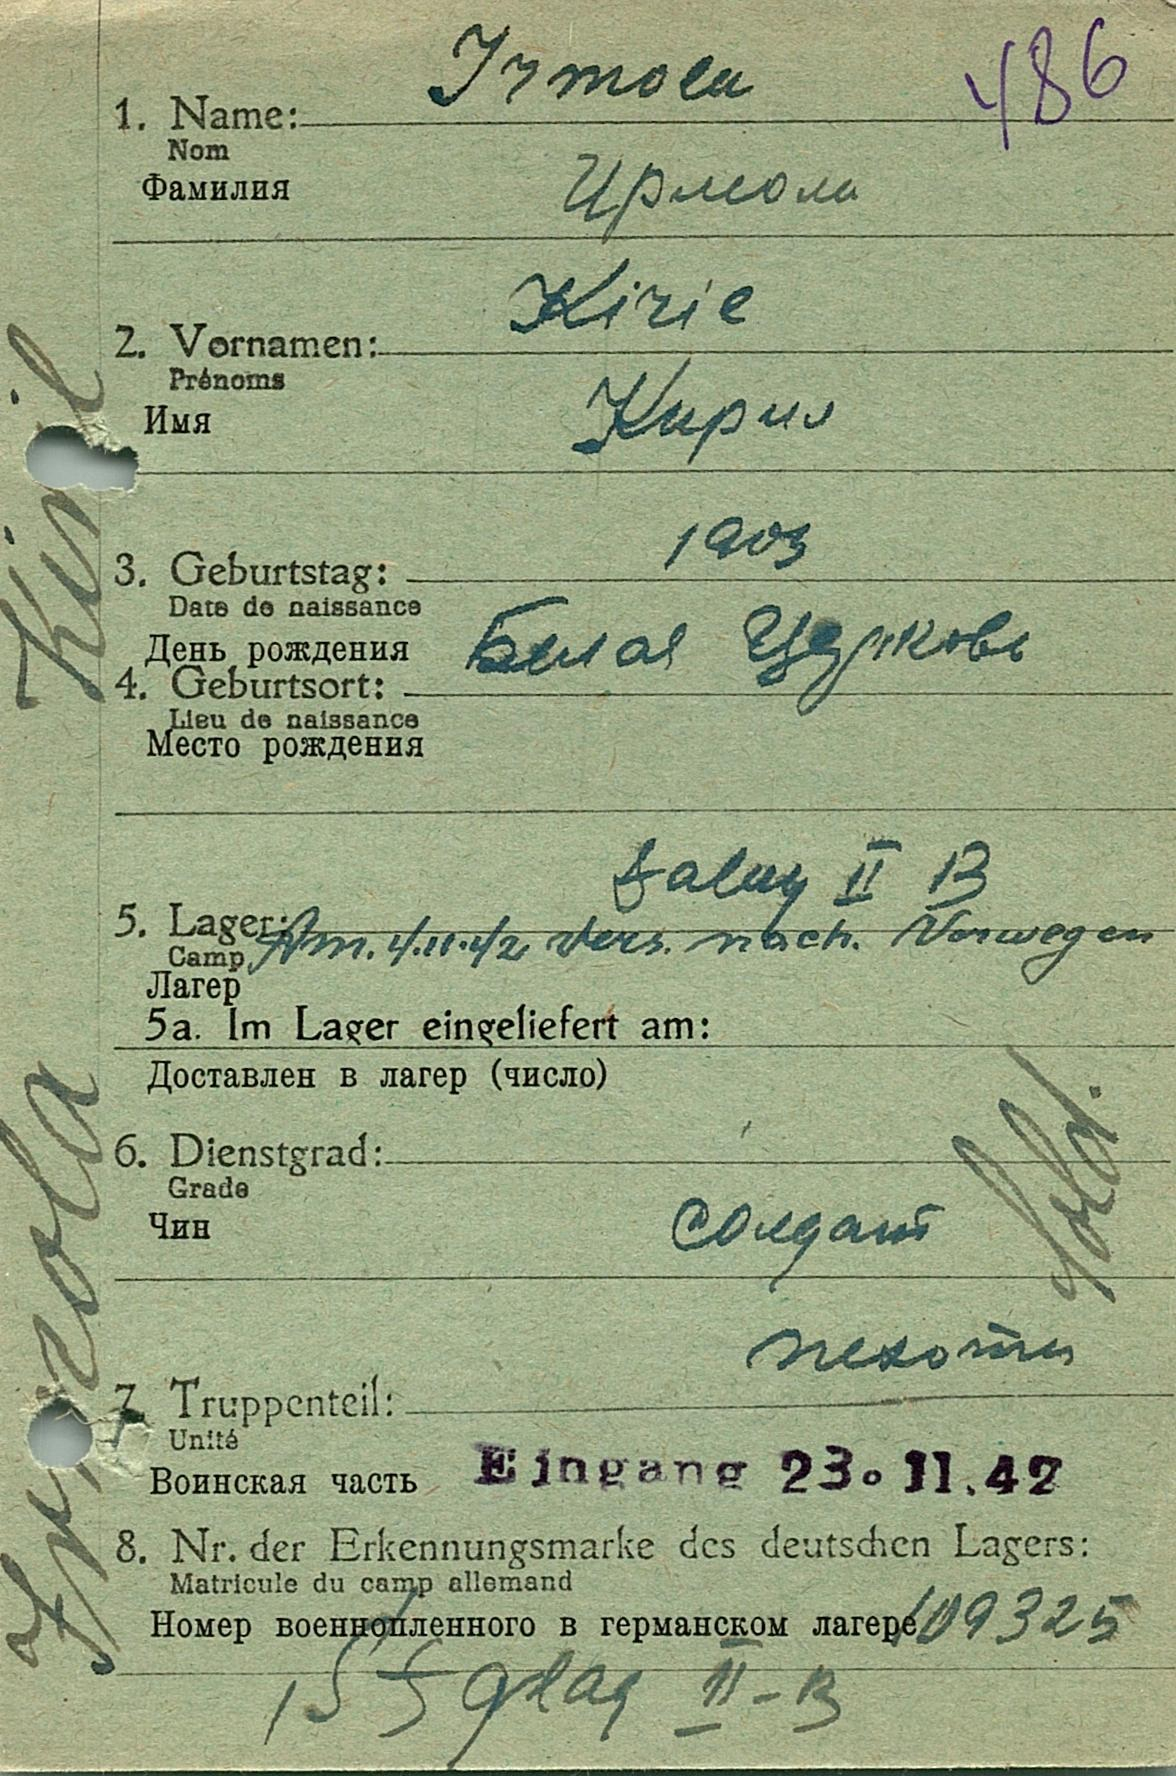 486
Irmola
1. Name:
Nom
Фамилия
Ирмола
Kirie
2. Vornamen:
Prénoms
Имя
Кирил
1903
3. Geburtstag:
Date de naissance
День рождения
Билая Церковь
4. Geburtsort:
Lieu de naissance
Место рождения
Stalag II B
5. Lager:
Am. 4.11.42 vers. nach. Norwegen
Camp
Лагер
5a. Im Lager eingeliefert am:
Доставлен в лагер (число)
6. Dienstgrad:
Grade
Чин
солдат
Sold.
пехоты
7. Truppenteil:
Unité
Воинская часть
Eingang 23.11.42
8. Nr. der Erkennungsmarke des deutschen Lagers:
Matricule du camp allemand
Номер военнопленного в германском лагере 109325
II-B
Irmola Kiril